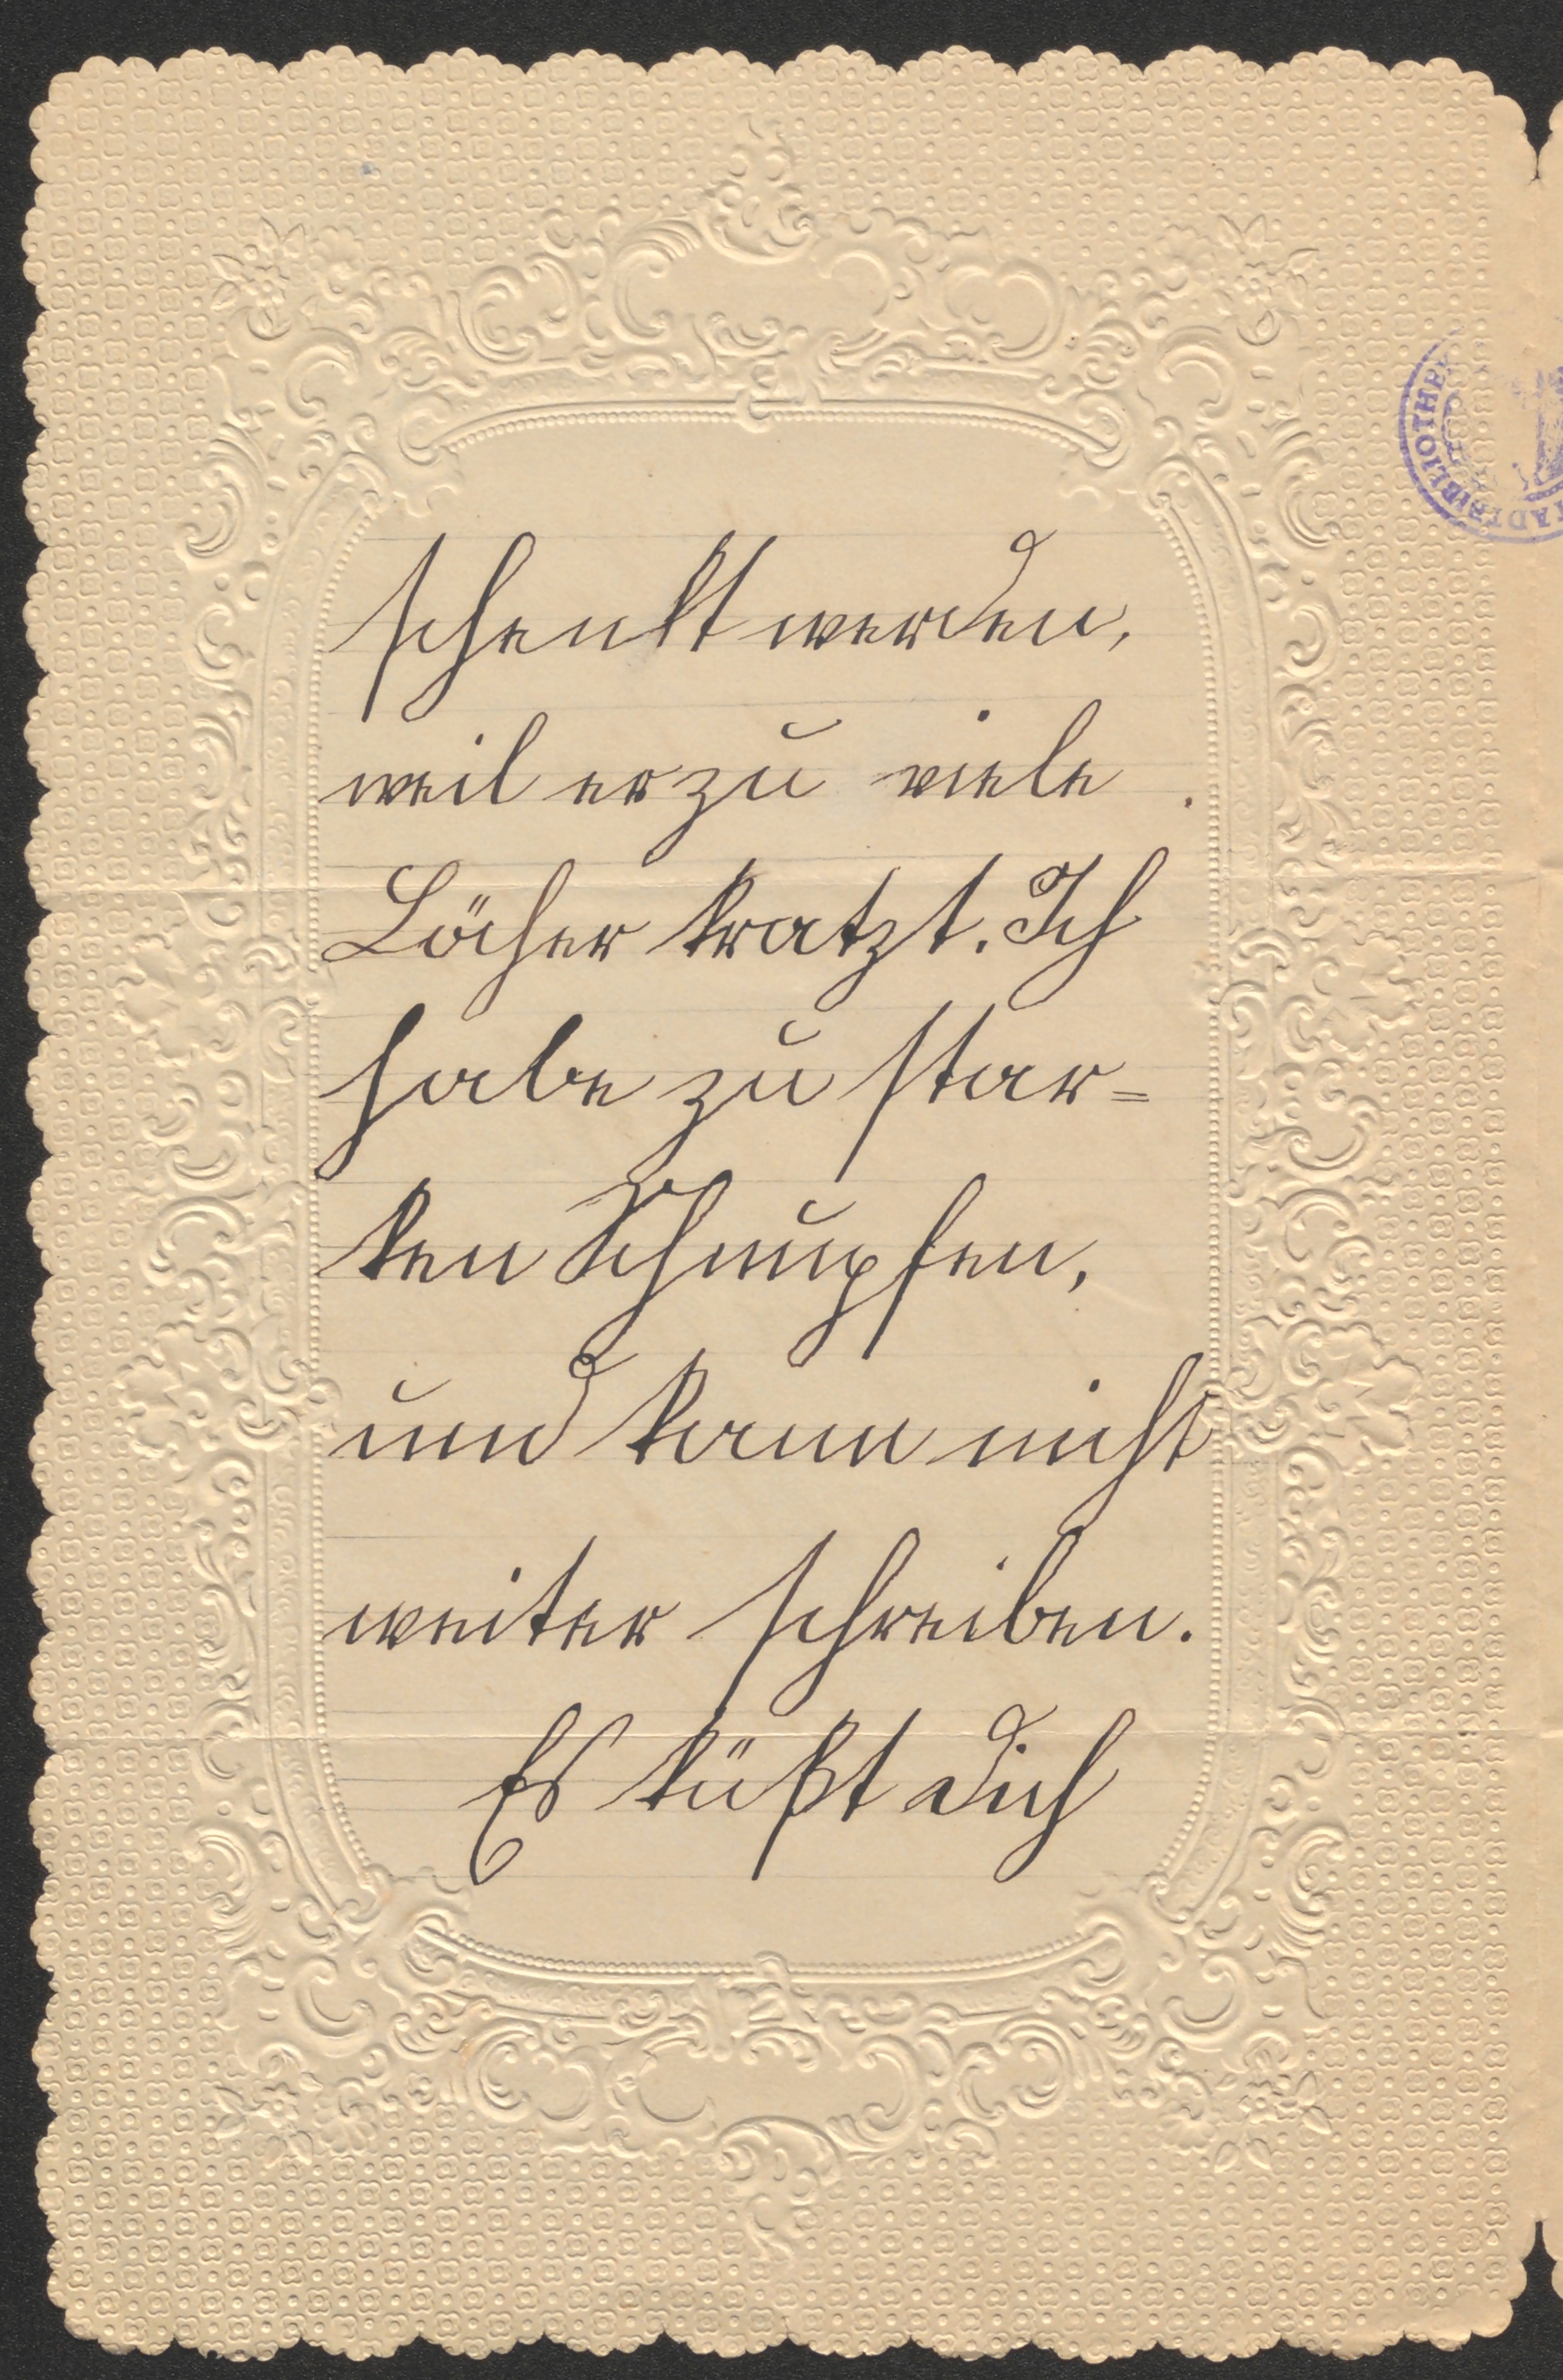 schenkt werden,
weil er zu viele
Löcher kratzt. Ich
habe zu star=
ken Schnupfen,
und kann nicht
weiter schreiben.
Es küßt Dich
BIBLIOTHEK